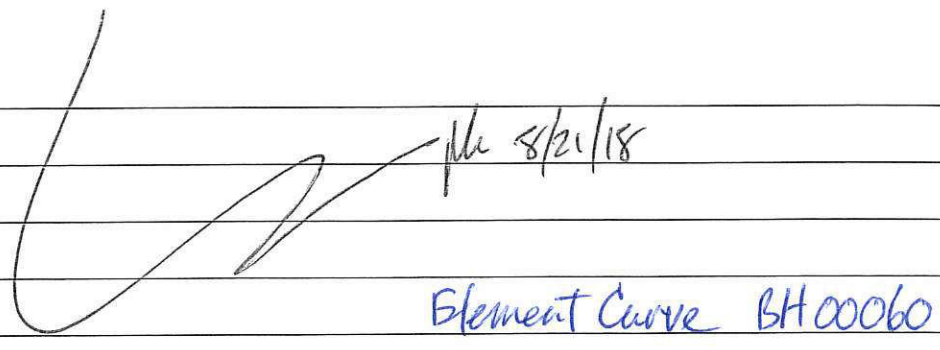 8/21/18
Element Curve BH00060